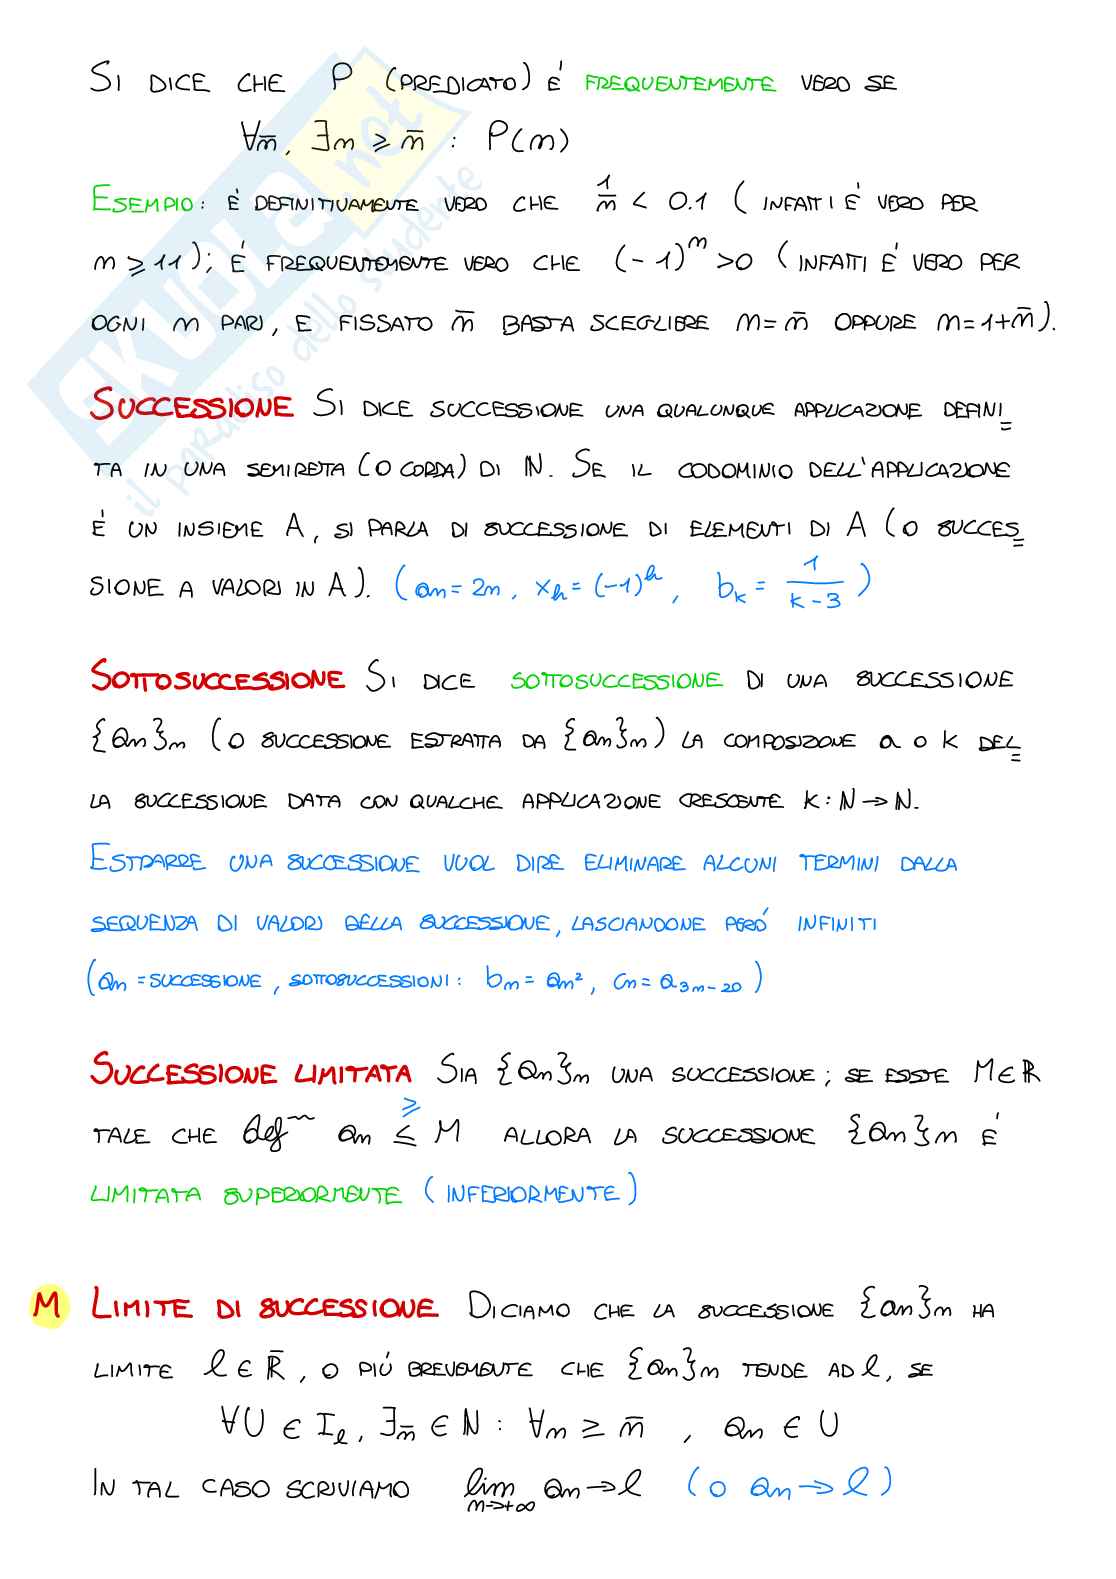 SI DICE CHE P (PREDICATO) É FREQUENTEMENTE VERO SE
∀n̄, ∃n ≥ n̄ : P(n)
ESEMPIO: É DEFINITIVAMENTE VERO CHE 1/n < 0.1 (INFATTI É VERO PER
n ≥ 11); É FREQUENTEMENTE VERO CHE (-1)^n > 0 (INFATTI É VERO PER
OGNI n PARI, E FISSATO n̄ BASTA SCEGLIERE n = n̄ OPPURE n = 1+n̄).
SUCCESSIONE SI DICE SUCCESSIONE UNA QUALUNQUE APPLICAZIONE DEFINI=
TA IN UNA SEMIRETTA (O CORDA) DI ℕ. SE IL CODOMINIO DELL'APPLICAZIONE
É UN INSIEME A, SI PARLA DI SUCCESSIONE DI ELEMENTI DI A (O SUCCES=
SIONE A VALORI IN A). (an = 2n, x_h = (-1)^h, b_k = 1/(k-3))
SOTTOSUCCESSIONE SI DICE SOTTOSUCCESSIONE DI UNA SUCCESSIONE
{an}n (O SUCCESSIONE ESTRATTA DA {an}n) LA COMPOSIZIONE a o k DEL=
LA SUCCESSIONE DATA CON QUALCHE APPLICAZIONE CRESCENTE k: ℕ → ℕ.
ESTRARRE UNA SUCCESSIONE VUOL DIRE ELIMINARE ALCUNI TERMINI DALLA
SEQUENZA DI VALORI DELLA SUCCESSIONE, LASCIANDONE PERÓ INFINITI
(an = SUCCESSIONE, SOTTOSUCCESSIONI: bn = an², cn = a_3n-20)
SUCCESSIONE LIMITATA SIA {an}n UNA SUCCESSIONE; SE ESISTE M ∈ ℝ
≥
TALE CHE def~ an ≤ M ALLORA LA SUCCESSIONE {an}n É
LIMITATA SUPERIORMENTE (INFERIORMENTE)
M LIMITE DI SUCCESSIONE DICIAMO CHE LA SUCCESSIONE {an}n HA
LIMITE l ∈ ℝ̄, O PIÚ BREVEMENTE CHE {an}n TENDE AD l, SE
∀U ∈ I_l, ∃n̄ ∈ ℕ : ∀n ≥ n̄ , an ∈ U
IN TAL CASO SCRIVIAMO lim n→+∞ an → l (O an → l)
SKUOLA.net
il paradiso dello studente